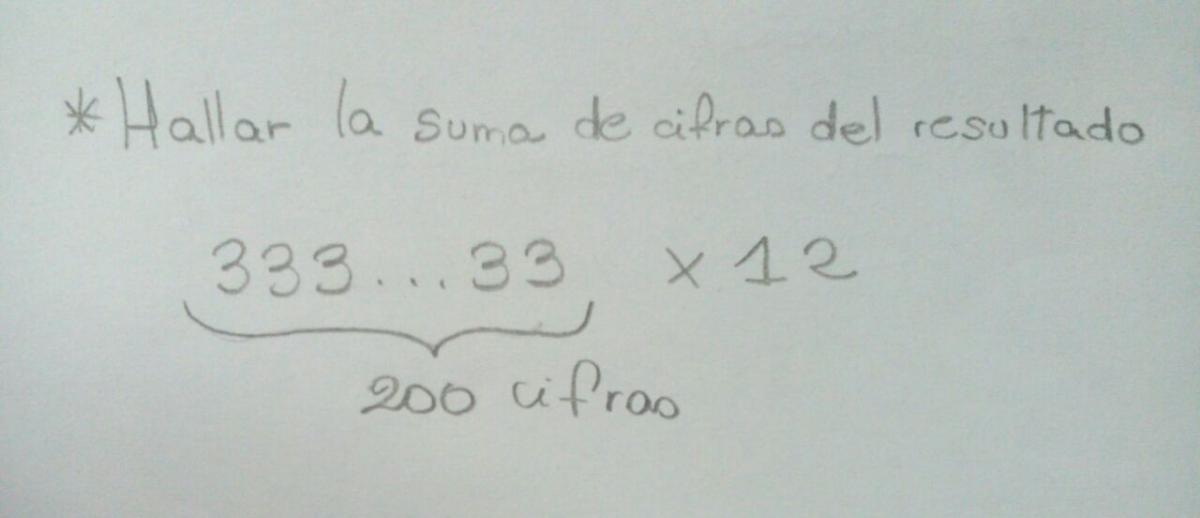 * Hallar la suma de cifras del resultado
333...33 x 12
200 cifras